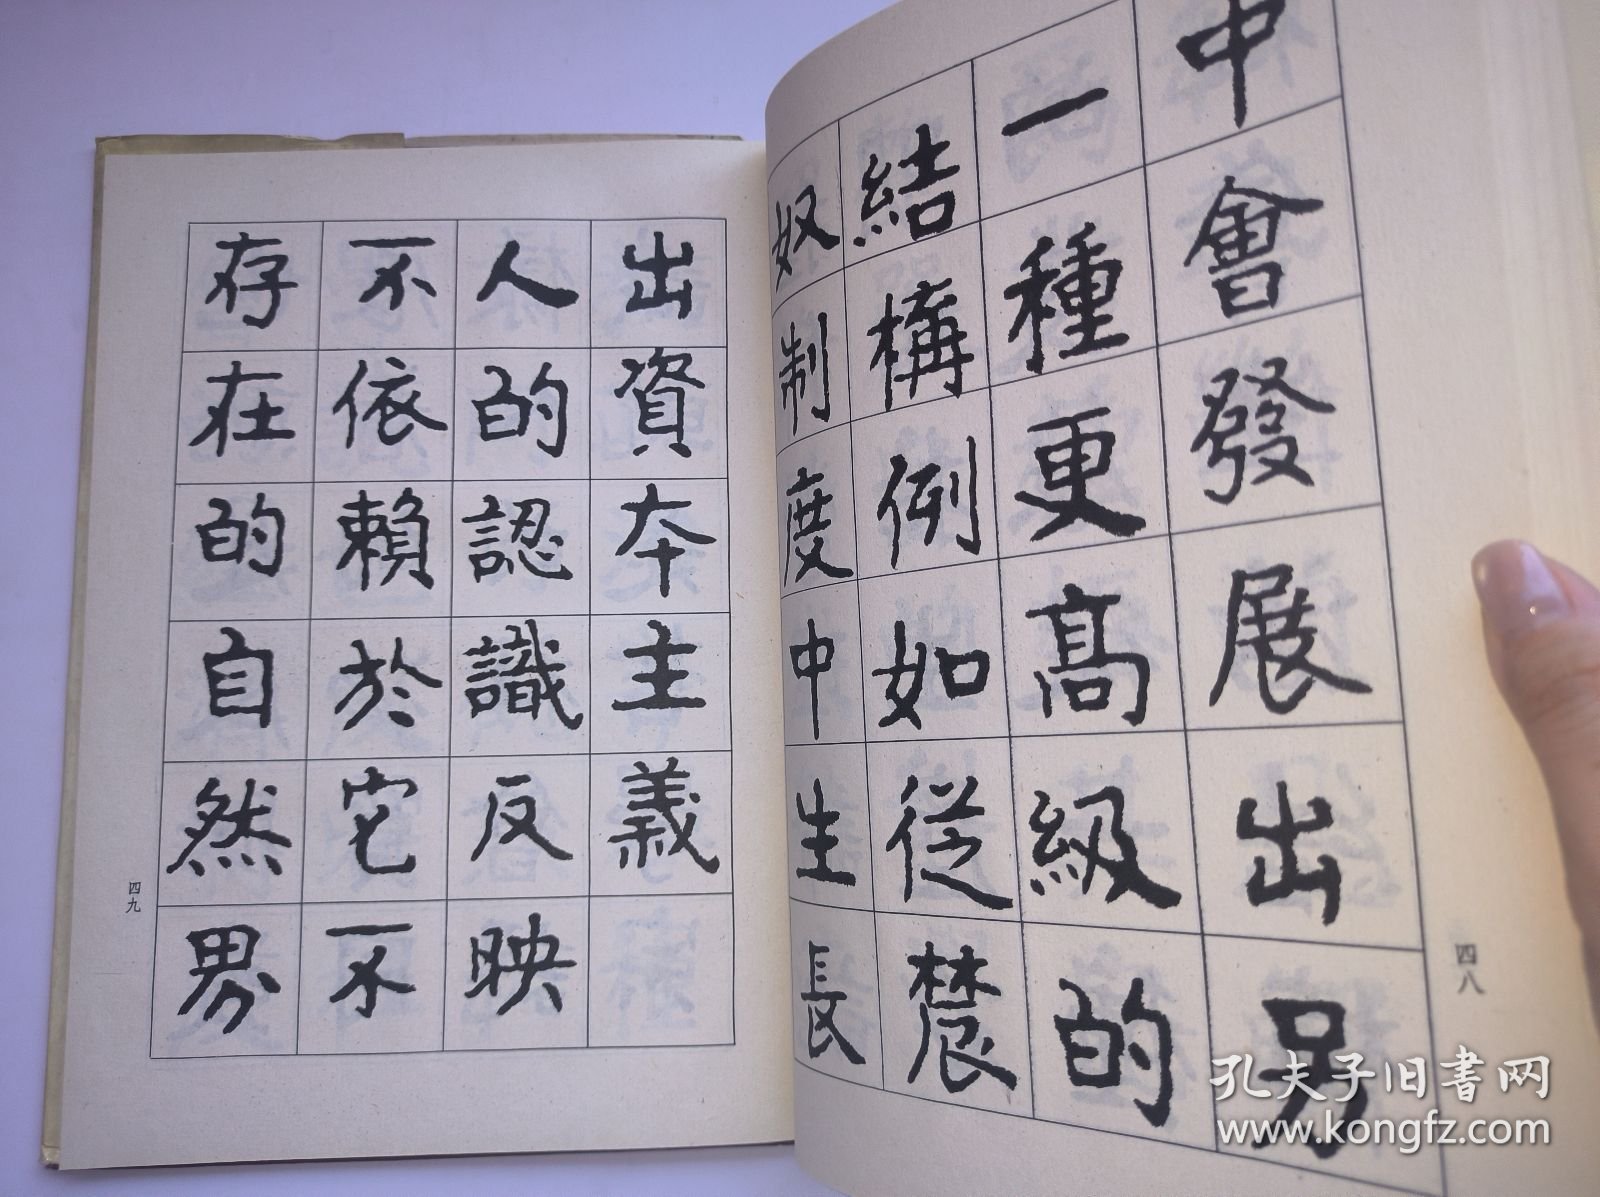 中會發展出另
一種更高級的
結構例如從農
奴制度中生長
四八
出資本主義
人的認識反映
不依賴於它不
存在的自然界
四九
孔夫子旧书网
www.kongfz.com